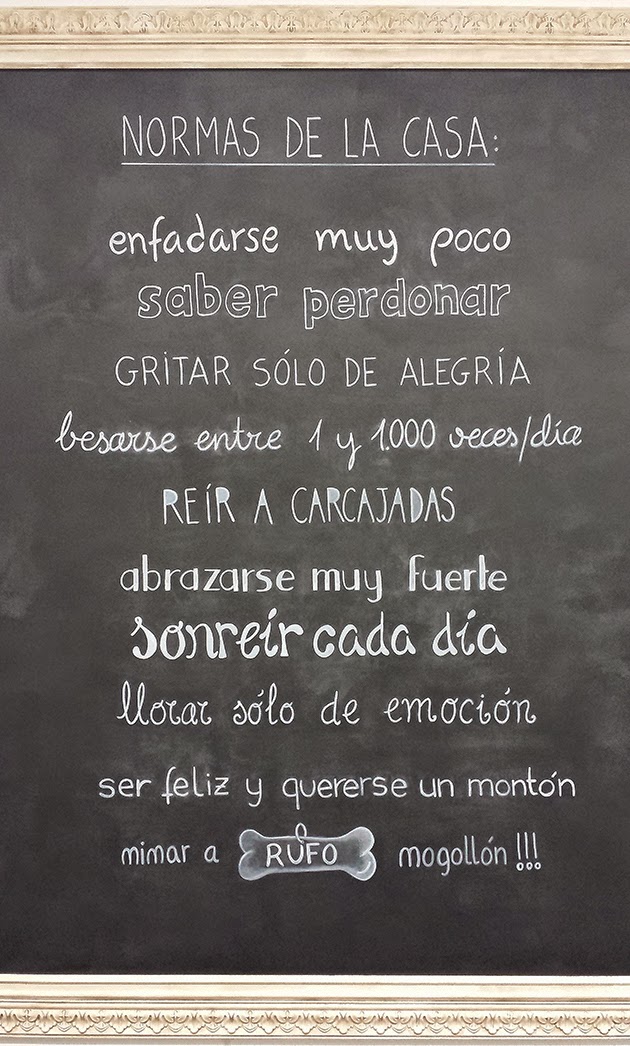 NORMAS DE LA CASA:
enfadarse muy poco
saber perdonar
GRITAR SÓLO DE ALEGRÍA
besarse entre 1 y 1.000 veces/día
REÍR A CARCAJADAS
abrazarse muy fuerte
sonreír cada día
llorar sólo de emoción
ser feliz y quererse un montón
mimar a RUFO mogollón!!!